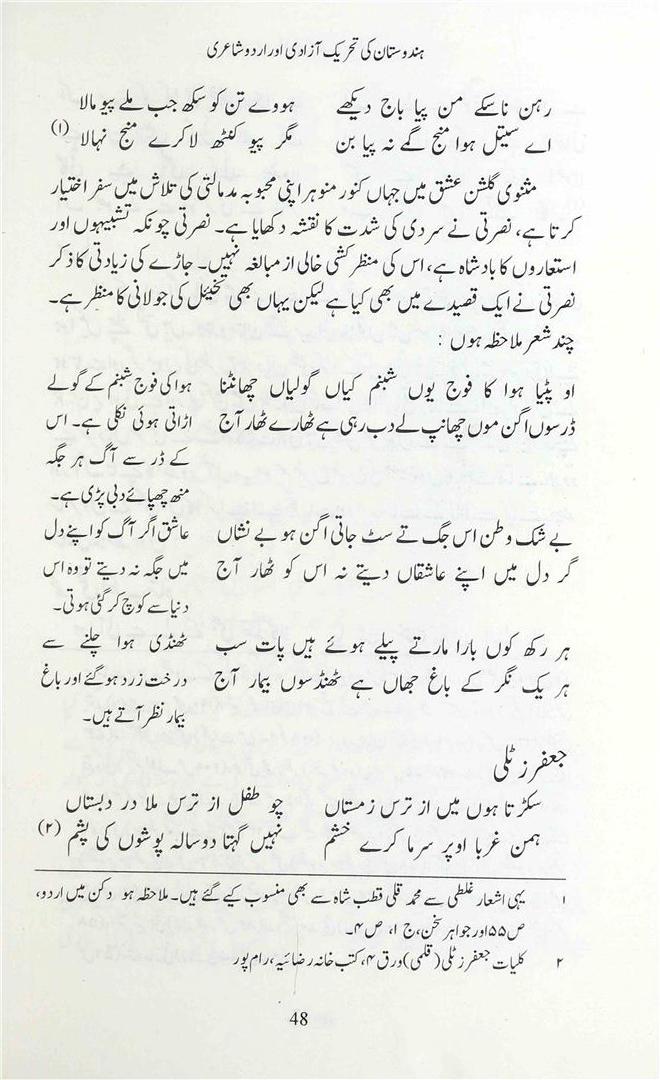 ہندوستان کی تحریک آزادی اور اردو شاعری
رہن ناسکے من پیا باج دیکھے ہووے تن کو سکھ جب ملے پیو مالا
اے سیتل ہوا منج گمے نہ پیا بن مگر پیو کنٹھ لاکرے منج نہالا (۱)
مثنوی گلشن عشق میں جہاں کنور منوہر اپنی محبوبہ مدمالتی کی تلاش میں سفر اختیار
کرتا ہے، نصرتی نے سردی کی شدت کا نقشہ دکھایا ہے۔ نصرتی چونکہ تشبیہوں اور
استعاروں کا بادشاہ ہے، اس کی منظر کشی خالی از مبالغہ نہیں۔ جاڑے کی زیادتی کا ذکر
نصرتی نے ایک قصیدے میں بھی کیا ہے لیکن یہاں بھی تخیئل کی جولانی کا منظر ہے۔
چند شعر ملاحظہ ہوں :
او پٹیا ہوا کا فوج یوں شبنم کیاں گولیاں چھانٹنا ہوا کی فوج شبنم کے گولے
ڈرسوں اگن موں چھانپ لے دب رہی ہے ٹھارے ٹھار آج اڑاتی ہوئی نکلی ہے۔ اس
کے ڈر سے آگ ہر جگہ
منھ چھپائے دبی پڑی ہے۔
بے شک وطن اس جگ تے سٹ جاتی اگن ہو بے نشاں عاشق اگر آگ کو اپنے دل
گر دل میں اپنے عاشقاں دیتے نہ اس کو ٹھار آج میں جگہ نہ دیتے تو وہ اس
دنیا سے کوچ کر گئی ہوتی۔
ہر رکھ کوں بارا مارتے پیلے ہوئے ہیں پات سب ٹھنڈی ہوا چلنے سے
ہر یک نگر کے باغ جھاں ہے ٹھنڈ سوں بیمار آج درخت زرد ہوگئے اور باغ
بیمار نظر آتے ہیں۔
جعفر زٹلی
سکڑتا ہوں میں از ترس زمستاں چو طفل از ترس ملا در دبستاں
ہمن غربا اوپر سرما کرے خشم نہیں گہتا دوسالہ پوشوں کی پشم (۲)
۱ یہی اشعار غلطی سے محمد قلی قطب شاہ سے بھی منسوب کیے گئے ہیں۔ ملاحظہ ہو دکن میں اردو،
ص۵۵ اور جواہر سخن، ج ۱، ص ۴۔
۲ کلیات جعفر زٹلی (قلمی) ورق ۴، کتب خانہ رضائیہ، رام پور
48